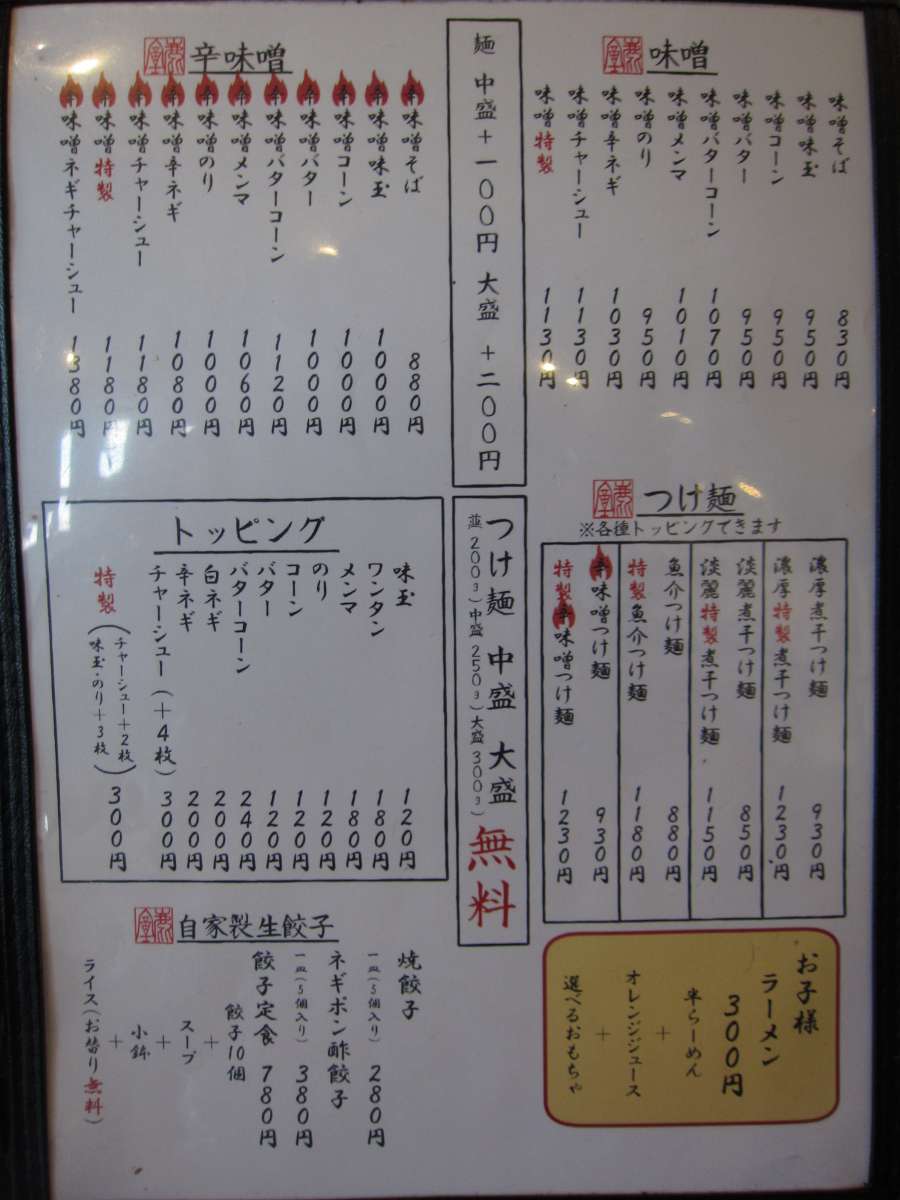 味噌
味噌そば 830円
味噌味玉 950円
味噌コーン 950円
味噌バター 950円
味噌バターコーン 1070円
味噌メンマ 1010円
味噌のり 950円
味噌辛ネギ 1030円
味噌チャーシュー 1130円
味噌特製 1130円
麺 中盛+一00円 大盛 +二00円
辛味噌
辛味噌そば 880円
辛味噌味玉 1000円
辛味噌コーン 1000円
辛味噌バター 1000円
辛味噌バターコーン 1120円
辛味噌メンマ 1060円
辛味噌のり 1000円
辛味噌辛ネギ 1080円
辛味噌チャーシュー 1180円
辛味噌特製 1180円
辛味噌ネギチャーシュー 1380円
つけ麺
※各種トッピングできます
濃厚煮干つけ麺 930円
濃厚特製煮干つけ麺 1230円
淡麗煮干つけ麺 850円
淡麗特製煮干つけ麺 1150円
魚介つけ麺 880円
特製魚介つけ麺 1180円
辛味噌つけ麺 930円
特製辛味噌つけ麺 1230円
つけ麺 中盛 大盛 無料
並200g)中盛250g)大盛300g)
トッピング
味玉 120円
ワンタン 180円
メンマ 180円
のり 120円
コーン 120円
バター 120円
バターコーン 240円
白ネギ 200円
辛ネギ 200円
チャーシュー(+4枚) 300円
特製(チャーシュー+2枚 味玉・のり+3枚) 300円
お子様
ラーメン
300円
半らーめん
+
オレンジジュース
+
選べるおもちゃ
自家製生餃子
焼餃子
一皿(5個入り) 280円
ネギポン酢餃子
一皿(5個入り) 380円
餃子定食 780円
餃子10個
+
スープ
+
小鉢
+
ライス(お替り無料)